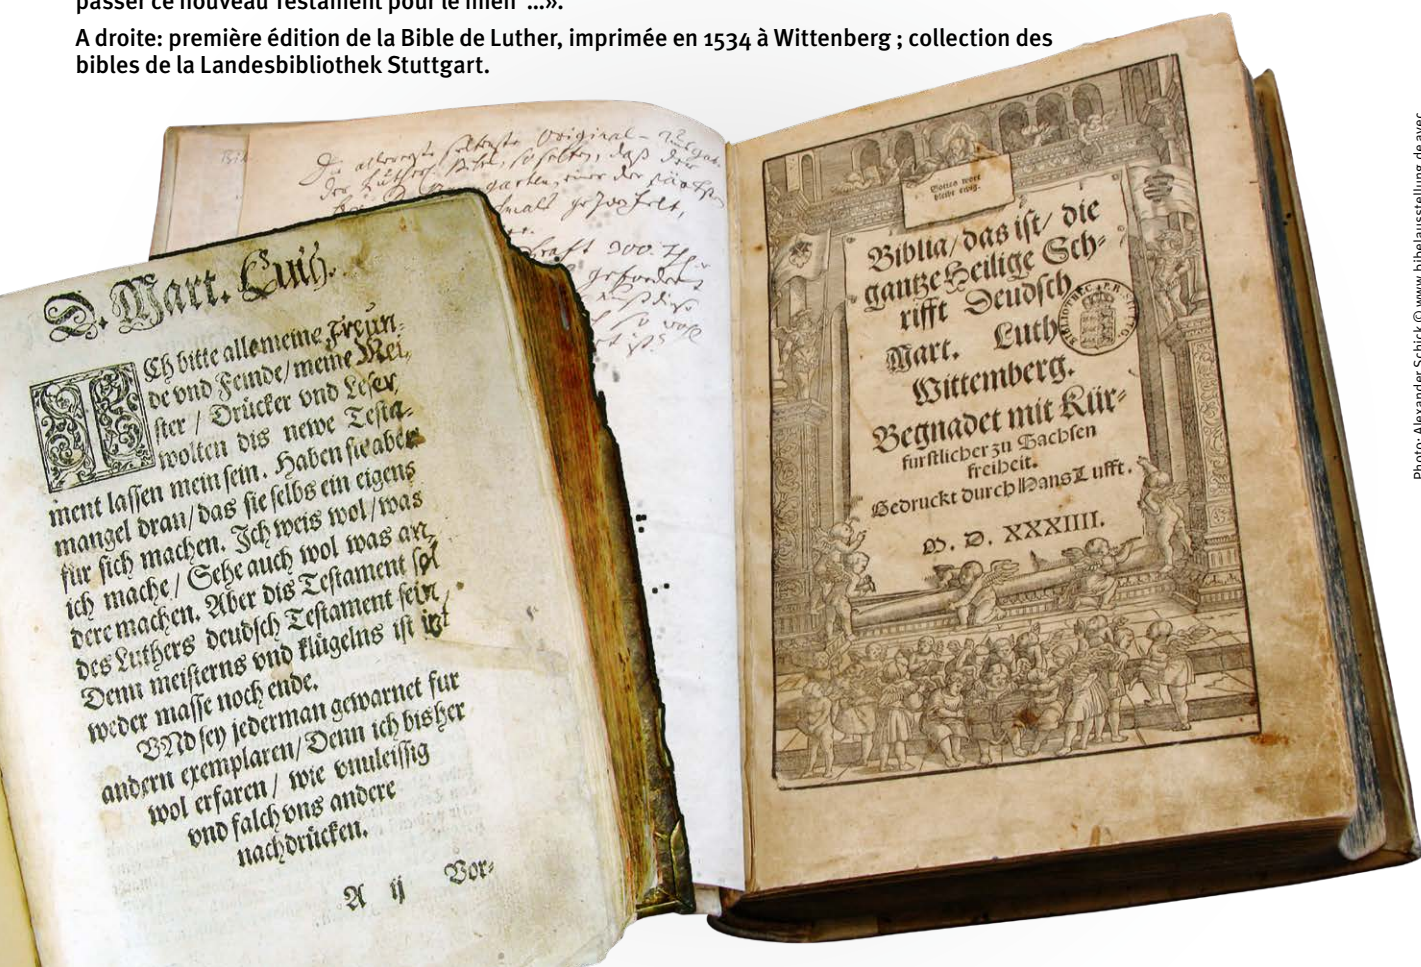 passer ce nouveau Testament pour le mien ...».
A droite: première édition de la Bible de Luther, imprimée en 1534 à Wittenberg ; collection des
bibles de la Landesbibliothek Stuttgart.
Photo: Alexander Schick © www.bibelausstellung.de avec
D. Mart. Luth.
ICh bitte alle meine Freun-
de vnd Feinde/meine Mei-
ster / Drücker vnd Leser,
wolten dis newe Testa-
ment lassen mein sein. Haben sie aber
mangel dran/das sie selbs ein eigens
für sich machen. Ich weis wol/was
ich mache/ Sehe auch wol was an-
dere machen. Aber dis Testament sol
des Luthers deudsch Testament sein/
Denn meisterns vnd klügelns ist itzt
weder masse noch ende.
VNd sey jederman gewarnet fur
andern exemplaren/Denn ich bisher
wol erfaren / wie vnuleissig
vnd falch vns andere
nachdrücken.
A ij Vor-
Die allererste Original-
der daß der
300
Gottes wort
bleibt ewig.
Biblia/das ist/ die
gantze Heilige Sch-
rifft Deudsch
Mart. Luth
Wittemberg.
Begnadet mit Kür-
furstlicher zu Sachsen
freiheit.
Gedruckt durch Hans Lufft.
M. D. XXXIIII.